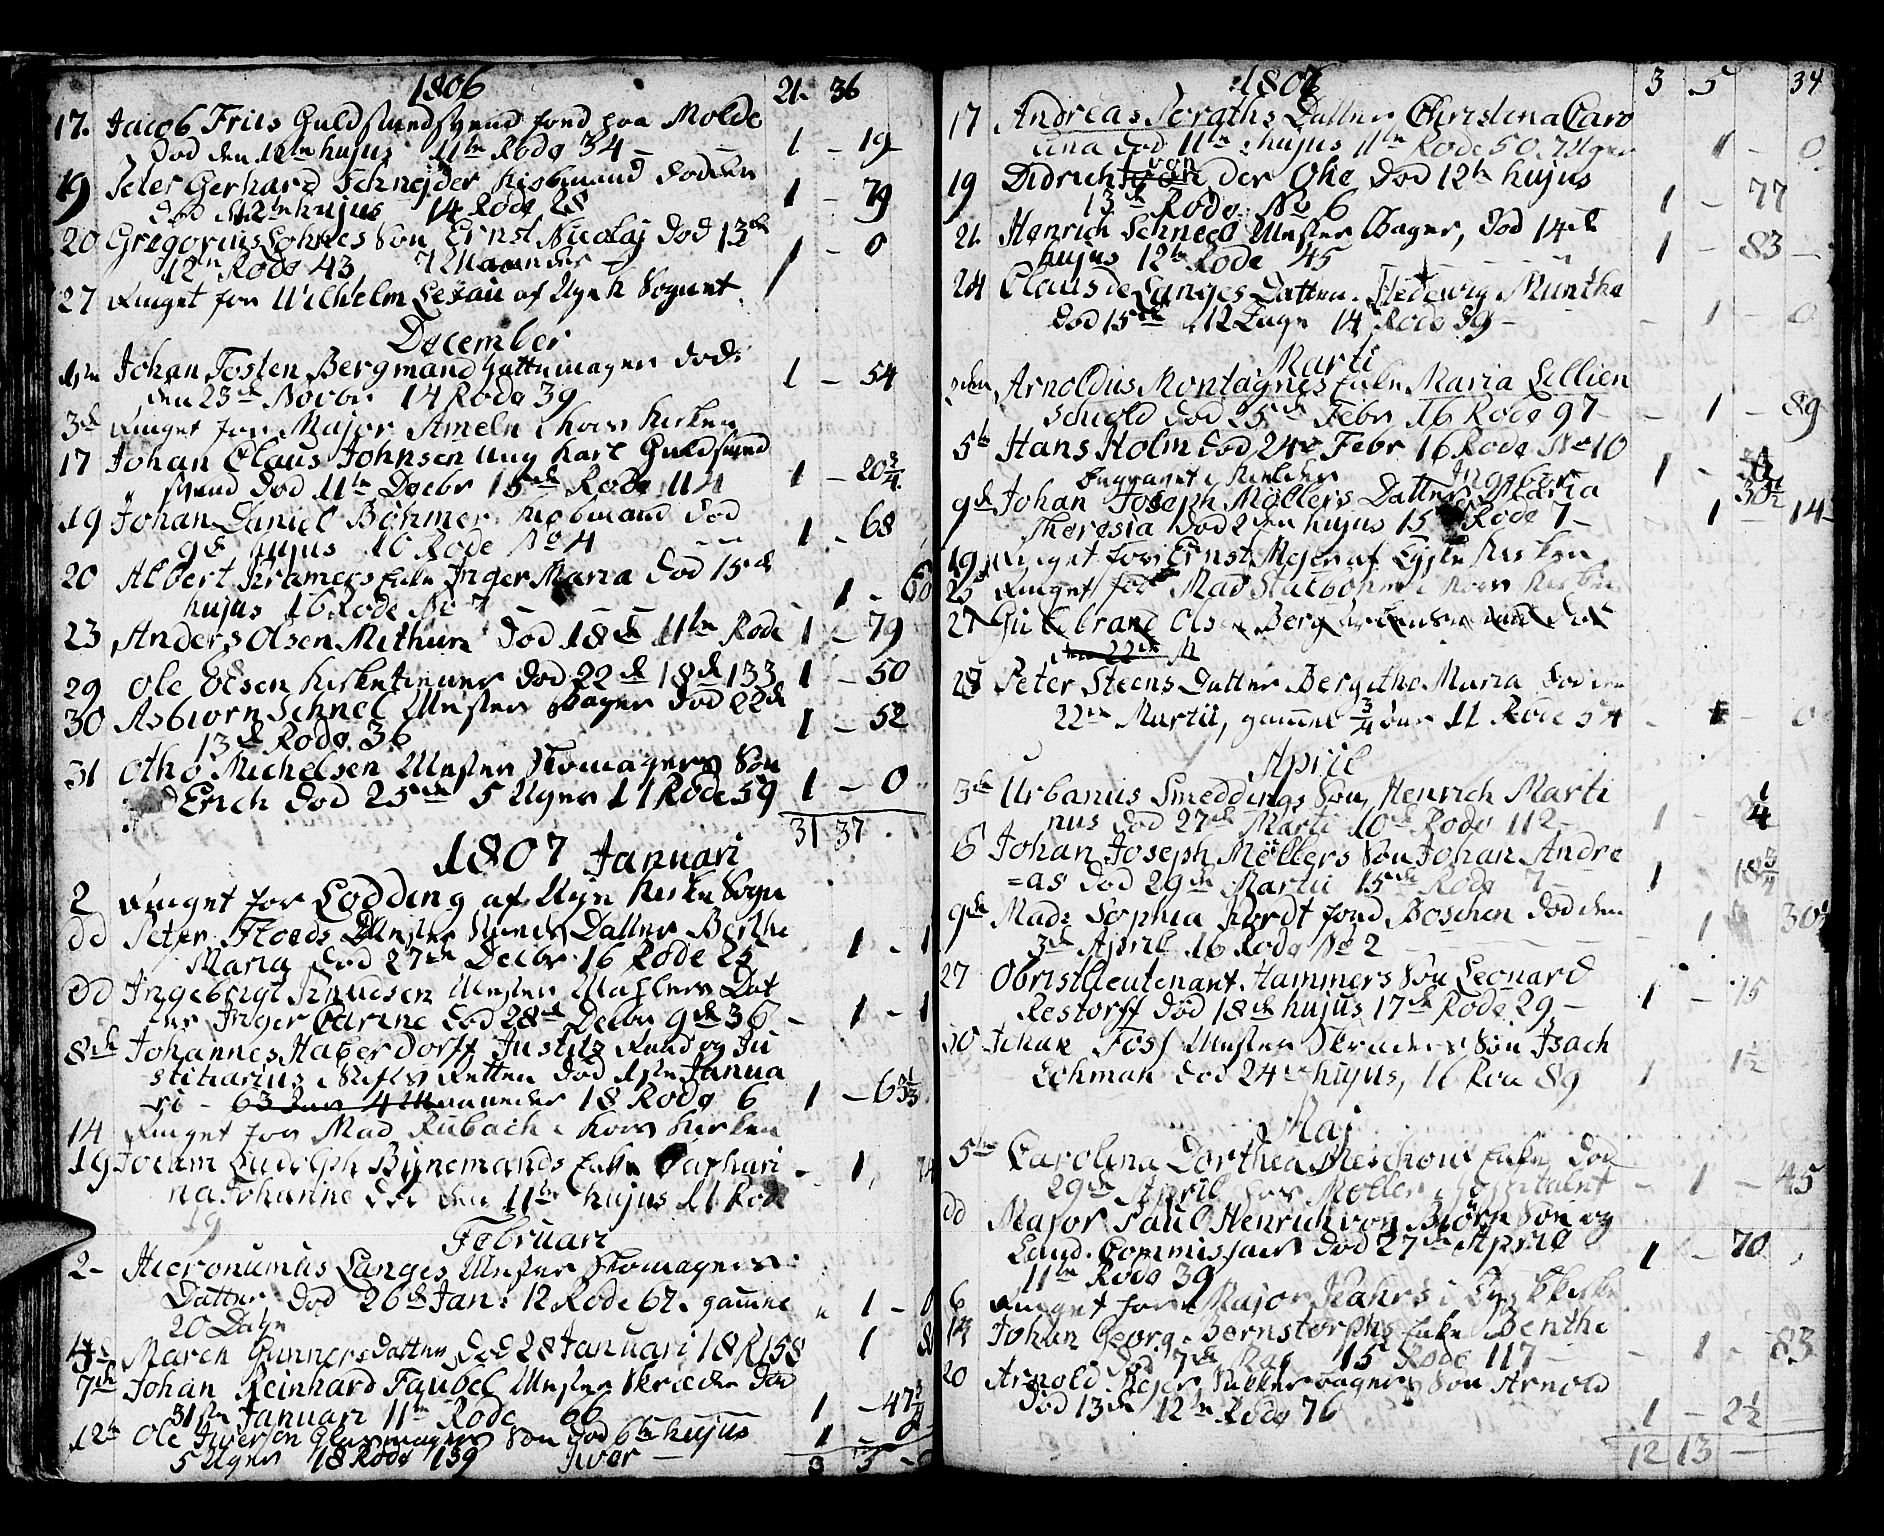 1806 21. 36
17. Jacob Friis Guldsmedsvend født paa Molde
død den 12te hujus 11te Rode 34 — 1 — 19
19 Peter Gerhard Schnejder Kiøbmand
død 12te hujus 14 Rode 28 1 — 79
20 Gregorius Søn Ernst Nicolaj død 13de
12te Rode 43, 7 Maaneder 1 — 0
27 Ringet for Wilhelm Lexau af Nyek Sognet
December
1ste Johan Tosten Bergmand Hattemager død
den 23de Novbr 14 Rode 39 1 — 54
3de Ringet for Major Ameln i Kors Kirken
17 Johan Claus Johnsen ung Karl Guldsmed
svend død 11te Decbr 15de Rode 114 1 — 20 3/4
19 Johan Daniel Böhmer Kiøbmand død
9de hujus 10 Rode No 4 1 — 68
20 Albert Kramers Enke Inger Maria død 15de
hujus 16 Rode No 7 1 — 60
23 Anders Olsen Mithun død 18de 11te Rode 1 — 79
29 Ole Olsen død 22de 18de 133 1 — 50
30 Asbiørn Schnel Mester Bager død 22de
13de Rode 36 1 — 52
31 Otho Michelsen Mester Skomagers Søn
Erich død 25de 5 Uger 11 Rode 59 1 — 0
31 37
1807 Januari
2 Ringet for Lodding af Nye Kirke Sogn
dd Peter Floeds Mester Datter Berthe
Maria død 27de Decbr 16 Rode 25 1 - 1
dd Ingebrigt Knudsen Mester Mahlers Dat
ter Inger Carine død 28de Decbr 9de 36 - 1 - 1
8de Johannes Hagerdorff Justitz Raad og Ju
stitiarius i Stifts Retten død 1ste Janua
ri - 63 Aar 4 Maaneder 18 Rode 6 1 — 63
14 Ringet for Mad Rubach i Kors Kirken
19 Jocum Ludolph Bynemands Enke Cathari - 1,
na Johanne død den 11te hujus 11 Rode
19
Februari
2 - Hieronumus Langes Mester Skomagers
Datter død 26de Jan: 12 Rode 67. gamel 1 -
20 Dage
4de Maren Gunners Datter død 28 Januari 18 R 158 1
7de Johan Reinhard Faubel Mester Skræder død
31te Januari 11te Rode 66 1 — 47 3/4
12te Ole Iversen Glasmager Søn død 6te hujus 1
5 Uger 18 Rode 139 Iver — 3 5
1807 3 5 34
17 Andreas Datter Christena Caro
lina død 11te hujus 11te Rode 50. 7 Uger 1 — 0
19 Didrich von der Ohe død 12te hujus
13de Rode No 6 1 — 77
21. Henrich Schneed Mester Bager, død 14de
hujus 12te Rode 45 1 — 83 —
24 Claus de Langes Datter Hedewig Munthe
død 15de 12 Dage 14 Rode 39 — 1 — 0
Marti
Arnoldus Montagnes Enke Maria Lillien
schiold død 25de Febr 16 Rode 97 — 1 — 89
5te Hans Holm død 24de Febr 16 Rode No 10
1 —
9de Johan Joseph Møllers Datter Ingebor Maria
Theresia død 2den hujus 15 Rode 7 — 1 — 14 —
19 Ringet for Ernst Mejer af Tyske Kirken
25 Ringet for Mad Stalbohm i Kors Kirken
27 Gulbrand Olsen Berg død
den 22de
28 Peter Steens Datter Bergithe Maria død den
22de Martii, gammel 3/4 Aar 11 Rode 54 — 1 — 0
April
3de Urbanus Smeddings Søn Henrich Marti
nus død 27de Marti 10de Rode 112 — 1 — 1/4
6 Johan Joseph Møllers Søn Johan Andre
=as død 29de Martii 15de Rode 7 — 1 18 3/4
9de Mad: Sophia født Boschen død den
3de April 16 Rode No 2 — 1 30
27 Obristlieutenant Hammers Søn Leonard
Restorff død 18de hujus 17de Rode 29 — 1 — 15
30 Foss Mester Skræders Søn Isach
Lohman død 24de hujus, 16 Rode 89 1 1 1/2
Maj
5te Carolina Dorthea Enke død
29de April hos Møller i Hospitalet — 1 — 45
dd Major Paul Henrich von Biörn Søn og
Land Commissair død 27de April 1 — 70
11te Rode 39
6 Ringet for Major i Tyskkirke
13 Johan Georg Bernstorphs Enke Benthe
død 7de Maj 15 Rode 117 — 1 - 83
20 Arnold Mejer Sukker Bagers Søn Arnold
død 13de 12te Rode 76 1 — 2 1/2
12 13 —